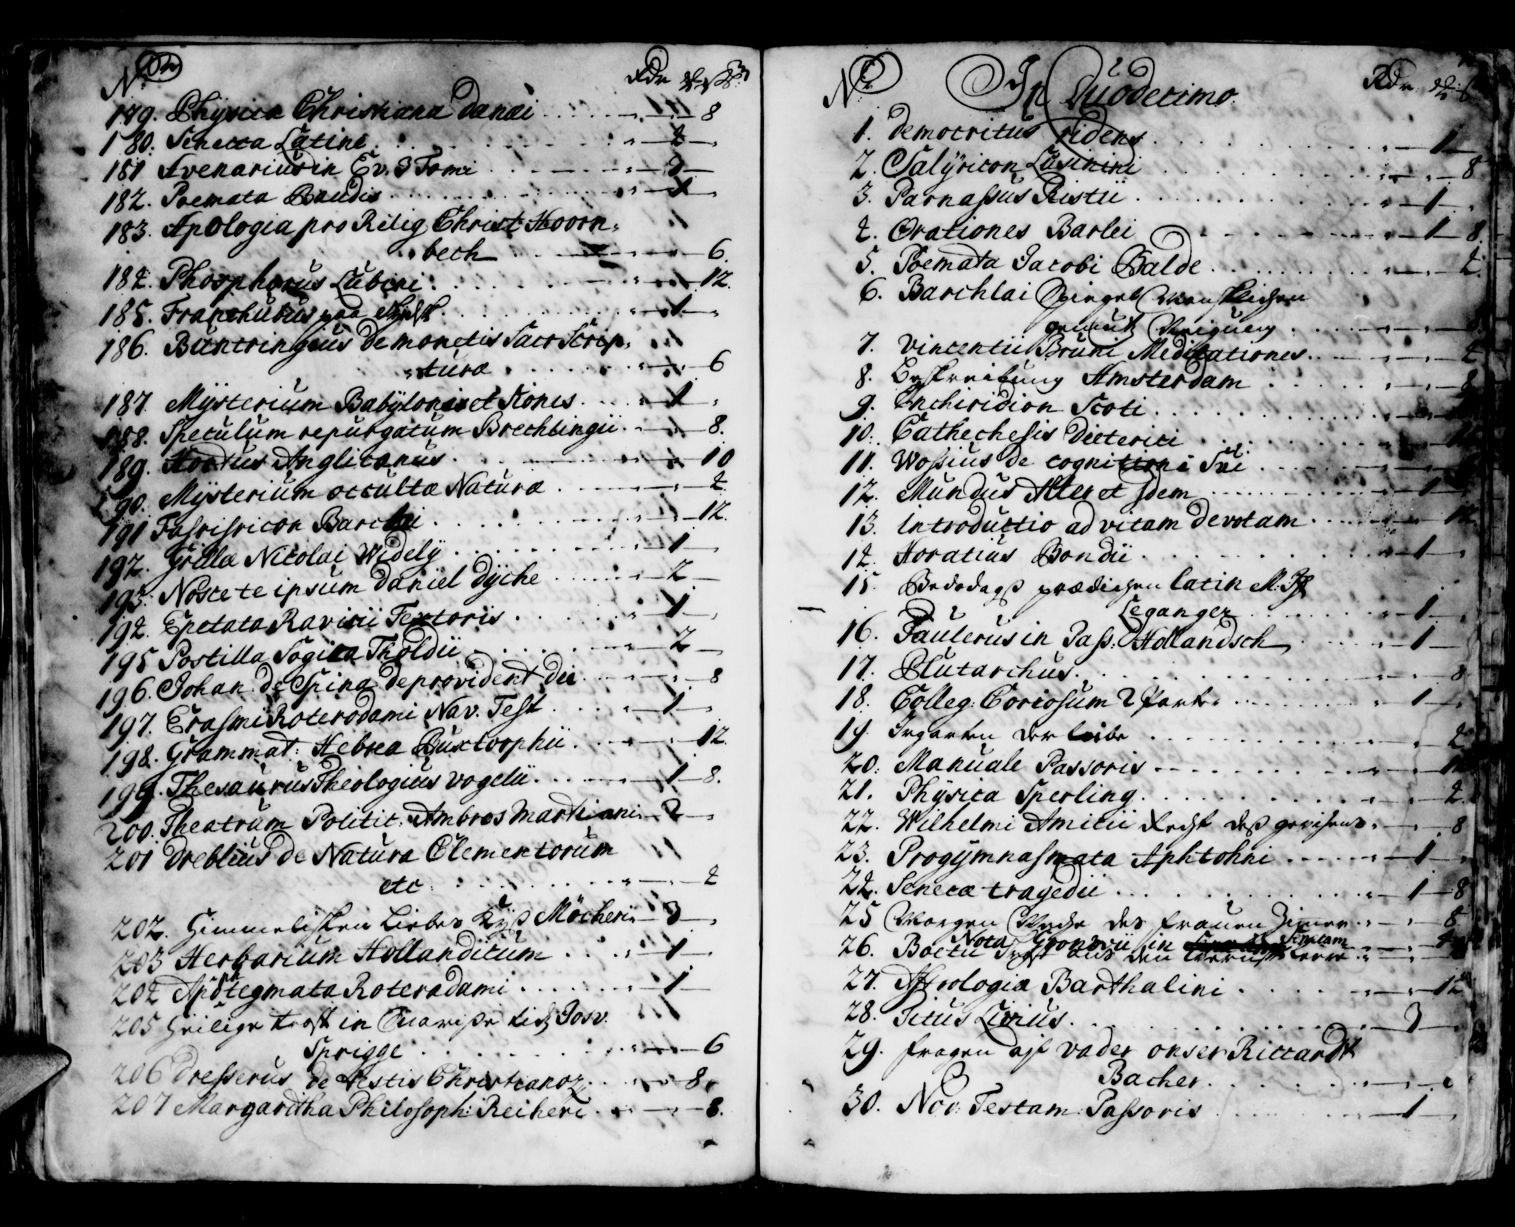 No
179. Physica Christiana Danæi . . . . 8
180. Senecca Latine . . . . 2
181 Avenarius in Ev. 3 Tomi . . . . 3
182. Poemata Baudis . . . . 1
183. Apologia pro Relig Christ: Hoorn,
beck . . . . 6.
184. Phosphorus Luberi . . . . 12.
185. . . . . 1
186. Büntringius de monetis Sacr Scrip,
tura . . . . 6
187. Mÿsterium Babÿlones et Sionis . . . . 1
188. Speculum repurgatum Brechlingii . . . . 8.
189. Hortus Anglicanus . . . . 10
190. Mÿsterium occulta Natura . . . . 2.
191 Barclai . . . . 12.
192. Nicolai Widelÿ . . . . 1
193. Noscete ipsum Daniel Dÿche . . . . 2
194. Epetata Ravisii Textoris . . . . 1
195 Postilla Tholdii . . . . 2
196. Johan de Spina de provident dei . . . . 8
197. Erasmi Roterodami Nav. Test . . . . 1
198. Grammat: Hebrea Buxtorphii . . . . 12.
199. Thesaurus Theologius Vogelii . . . . 1 8.
200. Theatrum Politic: Ambros Marliani . . 2
201 Dreblius de Natura Elementorum
etc . . . . 2
202. Himmelischen Liebes Kÿß Möcheri . . 3
203 Herbarium Hollandicum . . . . 1
204 Apotegmata Roteradami . . . . 1
205 Heilige trost in Josv.
Sprigge . . . . 6
206 Dresserus de Festis Christianor . . . . 8.
207 Margaretha Philosoph: Reiheri . . . . 8.
No In Duodecimo.
1. Democritus ridens . . . . 1
2. Satÿricon Lusinini . . . . 8
3. Parnassus Ristii . . . . 1
4. Orationes Barlei . . . . 1 8.
5. Poemata Jacobi Balde . . . . 2
6. Barchlai Spiegel Menschlichen
gemüth . . . .
7. Vincentii Bruni Meditationes . . . . 2
8. Beschreibung Amsterdam . . . . 8
9. Encheridion Scoti . . . .
10. Cathechesis Dieterici . . . .
11. Wossius de cognitione Sui . . . .
12. Mundus Alter et Idem . . . . 1
13. Introductio ad vitam devotam . . . . 12
14. Horatius Bondii . . . . 1
15. latin M. H
Leganger . . . . 1
16. Taulerus in Pass: Hollandsch . . . . 1
17. Plutarchus . . . . 8
18. Colleg: Coriosum 2 Parts . . . . 1
19. Irgarten der leibe . . . . 2
20. Manuale Passoris . . . .
21. Phÿsica Sperling . . . . 2
22. Wilhelmi Amesii Recht deß gewissens . . 8
23. Progÿmnasmata Aphtohni . . . . 1
24. Senecæ tragedii . . . . 1 8
25 Morgen des frauen Zimer . . 8
26. Boetii Trost aus den
27. Astrologia Barthalini . . . . 12
28. Titus Livius . . . . 3
29. fragen auf vader onser Riccardt
Bacher . . . .
30. Nov: Testam: Passoris . . . . 1